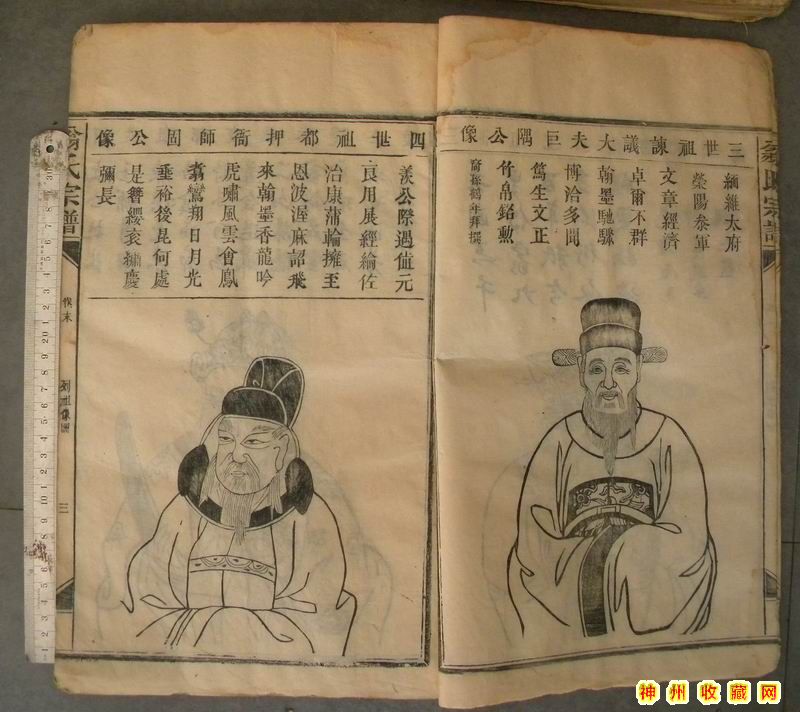 三世祖諫議大夫巨隅公像
緬維太府
榮陽叅軍
文章經濟
卓爾不群
翰墨馳驟
博洽多聞
篤生文正
竹帛銘勲
裔孫鶴年拜撰
四世祖都押衙師固公像
羨公際遇值元
良用展經綸佐
治康蒲輪擁至
恩波渥麻詔飛
來翰墨香龍吟
虎嘯風雲會鳳
翥鸞翔日月光
垂裕後昆何處
是簪纓衮黼慶
彌長
氏宗譜
列祖像圖
三
神州收藏网